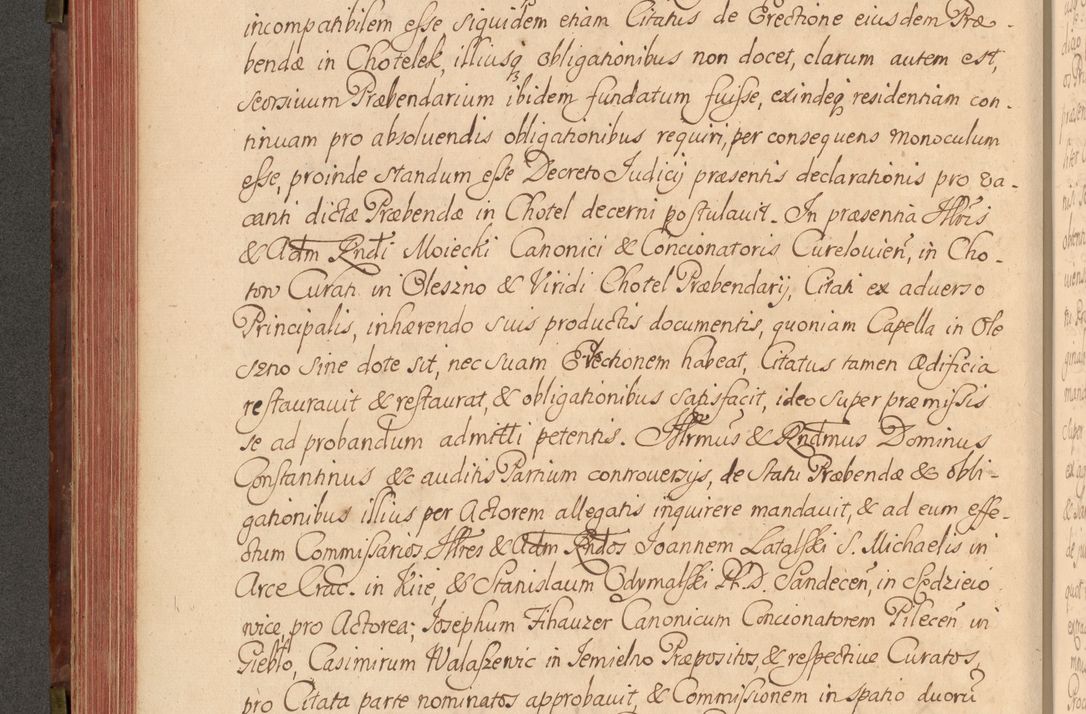 incompatibilem esse siquidem etiam Citatus de Erectione eiusdem Præ-
bendæ in Chotelek, illiusq obligationibus non docet, clarum autem est,
seorsivum Præbendarium ibidem fundatum fuisse, exindeq residentiam con-
tinuam pro absoluendis obligationibus requiri, per consequens monoculum
esse, proinde standum esse Decreto Iudicij præsentis declarationis pro va-
canti dictæ Præbendæ in Chotel decerni postulavit. In præsentia Illris
& Adm Rndi Moiecki Canonici & Concionatoris Curelovien, in Cho-
tow Curati in Oleszno & Viridi Chotel Præbendarij, Citati ex adverso
Principalis, inhærendo suis productis documentis, quoniam Capella in Ole
szno sine dote sit, nec suam Erectionem habeat, Citatus tamen Ædificia
restauravit & restaurat, & obligationibus satisfacit, ideo super præmissis
se ad probandum admitti petentis. Illrmus & Rndmus Dominus
Constantinus &c auditis Partium controversijs, de statu Præbendæ & obli-
gationibus illius per Actorem allegatis inquirere mandavit, & ad eum effe-
ctum Commissarios Illres & Adm Rndos Joannem Latalski S. Michaelis in
Arce Crac. in Kije, & Stanislaum Odymalski P. D. Sandecen, in Sędziejo
wice, pro Actorea; Josephum Fihauzer Canonicum Concionatorem Pilecen in
Giebło, Casimirum Walaszewic in Jemielno Præpositos & respective Curatos,
pro Citata parte nominatos approbavit, & Commissionem in spatio duorū